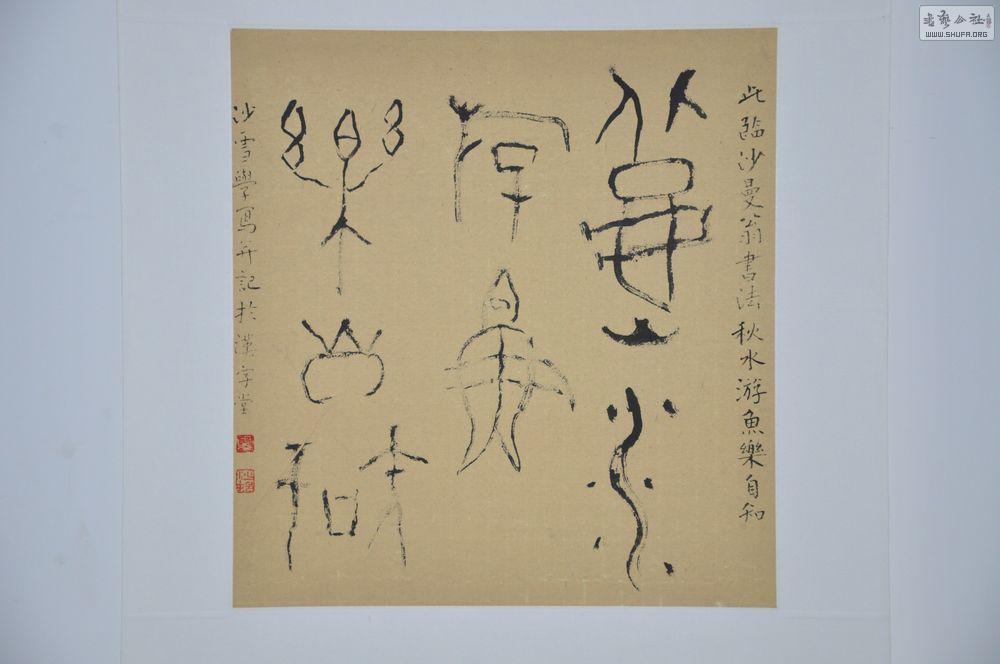 此臨沙曼翁書法秋水游魚樂自和
秋水
游魚
樂自和
沙雪學寫并記於漢字堂
書藝公社
WWW.SHUFA.ORG